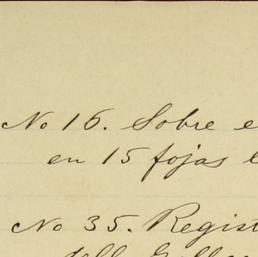 No 16. Sobre e
en 15 fojas
No 35. Regist